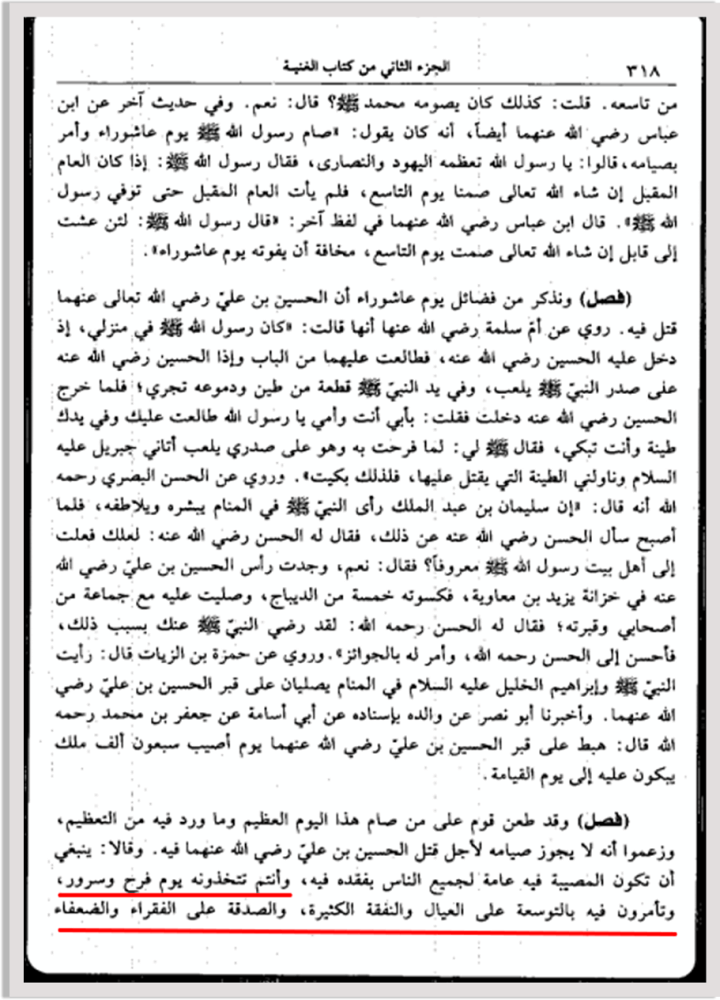 ٣١٨
الجزء الثاني من كتاب الغنية
من تاسعه. قلت: كذلك كان يصومه محمد ﷺ؟ قال: نعم. وفي حديث آخر عن ابن
عباس رضي الله عنهما أيضاً، أنه كان يقول: «صام رسول الله ﷺ يوم عاشوراء وأمر
بصيامه، قالوا: يا رسول الله تعظمه اليهود والنصارى، فقال رسول الله ﷺ: إذا كان العام
المقبل إن شاء الله تعالى صمنا يوم التاسع، فلم يأت العام المقبل حتى توفي رسول
الله ﷺ». قال ابن عباس رضي الله عنهما في لفظ آخر: «قال رسول الله ﷺ: لئن عشت
إلى قابل إن شاء الله تعالى صمت يوم التاسع، مخافة أن يفوته يوم عاشوراء».
(فصل) ونذكر من فضائل يوم عاشوراء أن الحسين بن عليّ رضي الله تعالى عنهما
قتل فيه. روي عن أمّ سلمة رضي الله عنها أنها قالت: «كان رسول الله ﷺ في منزلي، إذ
دخل عليه الحسين رضي الله عنه، فطالعت عليهما من الباب وإذا الحسين رضي الله عنه
على صدر النبيّ ﷺ يلعب، وفي يد النبيّ ﷺ قطعة من طين ودموعه تجري؛ فلما خرج
الحسين رضي الله عنه دخلت فقلت: بأبي أنت وأمي يا رسول الله طالعت عليك وفي يدك
طينة وأنت تبكي، فقال ﷺ لي: لما فرحت به وهو على صدري يلعب أتاني جبريل عليه
السلام وناولني الطينة التي يقتل عليها، فلذلك بكيت». وروي عن الحسن البصري رحمه
الله أنه قال: «إن سليمان بن عبد الملك رأى النبيّ ﷺ في المنام يبشره ويلاطفه، فلما
أصبح سأل الحسن رضي الله عنه عن ذلك، فقال له الحسن رضي الله عنه: لعلك فعلت
إلى أهل بيت رسول الله ﷺ معروفاً؟ فقال: نعم، وجدت رأس الحسين بن عليّ رضي الله
عنه في خزانة يزيد بن معاوية، فكسوته خمسة من الديباج، وصليت عليه مع جماعة من
أصحابي وقبرته؛ فقال له الحسن رحمه الله: لقد رضي النبيّ ﷺ عنك بسبب ذلك،
فأحسن إلى الحسن رحمه الله، وأمر له بالجوائز». وروي عن حمزة بن الزيات قال: رأيت
النبيّ ﷺ وإبراهيم الخليل عليه السلام في المنام يصليان على قبر الحسين بن عليّ رضي
الله عنهما. وأخبرنا أبو نصر عن والده بإسناده عن أبي أسامة عن جعفر بن محمد رحمه
الله قال: هبط على قبر الحسين بن عليّ رضي الله عنهما يوم أصيب سبعون ألف ملك
يبكون عليه إلى يوم القيامة.
(فصل) وقد طعن قوم على من صام هذا اليوم العظيم وما ورد فيه من التعظيم،
وزعموا أنه لا يجوز صيامه لأجل قتل الحسين بن عليّ رضي الله عنهما فيه. وقالا: ينبغي
أن تكون المصيبة فيه عامة لجميع الناس بفقده فيه، وأنتم تتخذونه يوم فرح وسرور،
وتأمرون فيه بالتوسعة على العيال والنفقة الكثيرة، والصدقة على الفقراء والضعفاء